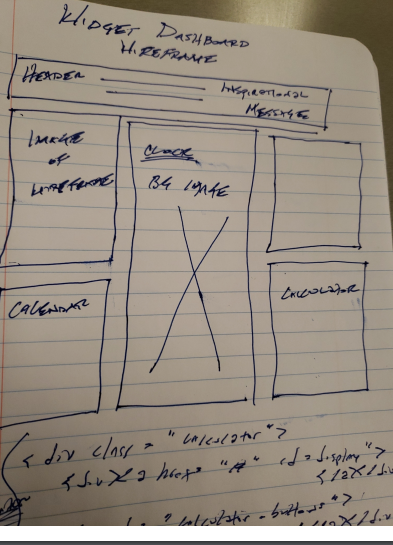 WIDGET DASHBOARD
WIREFRAME
HEADER
INSPIRATIONAL
MESSAGE
IMAGE
OF
WIREFRAME
CLOCK
BG IMAGE
CALENDAR
CALCULATOR
< div class = "calculator">
< div>< a href = "#" id = display">
</a></div
calculator-buttons">
</div